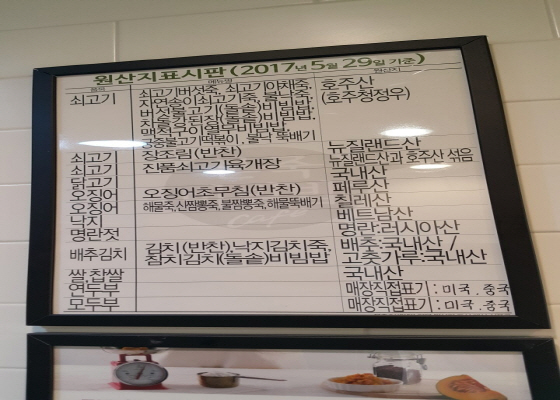 원산지표시판 (2017년 5월 29일 기준)
메뉴명 원산지
쇠고기 쇠고기버섯죽, 쇠고기야채죽, 호주산
자연송이쇠고기죽, 불낙죽, (호주청정우)
버섯불고기(돌솥)비빔밥,
차돌박이된장(돌솥)비빔밥,
궁중불고기떡볶이, 불낙 뚝배기
쇠고기 장조림(반찬) 뉴질랜드산
쇠고기 진품쇠고기육개장 뉴질랜드산과 호주산 섞음
닭고기 국내산
오징어 오징어초무침(반찬) 페루산
오징어 해물죽,신짬뽕죽,불짬뽕죽,해물뚝배기 칠레산
낙지 베트남산
명란젓 명란:러시아산
배추김치 김치(반찬),낙지김치죽, 배추:국내산 /
참치김치(돌솥)비빔밥 고춧가루:국내산
쌀,찹쌀 국내산
연두부 매장직접표기 : 미국, 중국
모두부 매장직접표기 : 미국, 중국